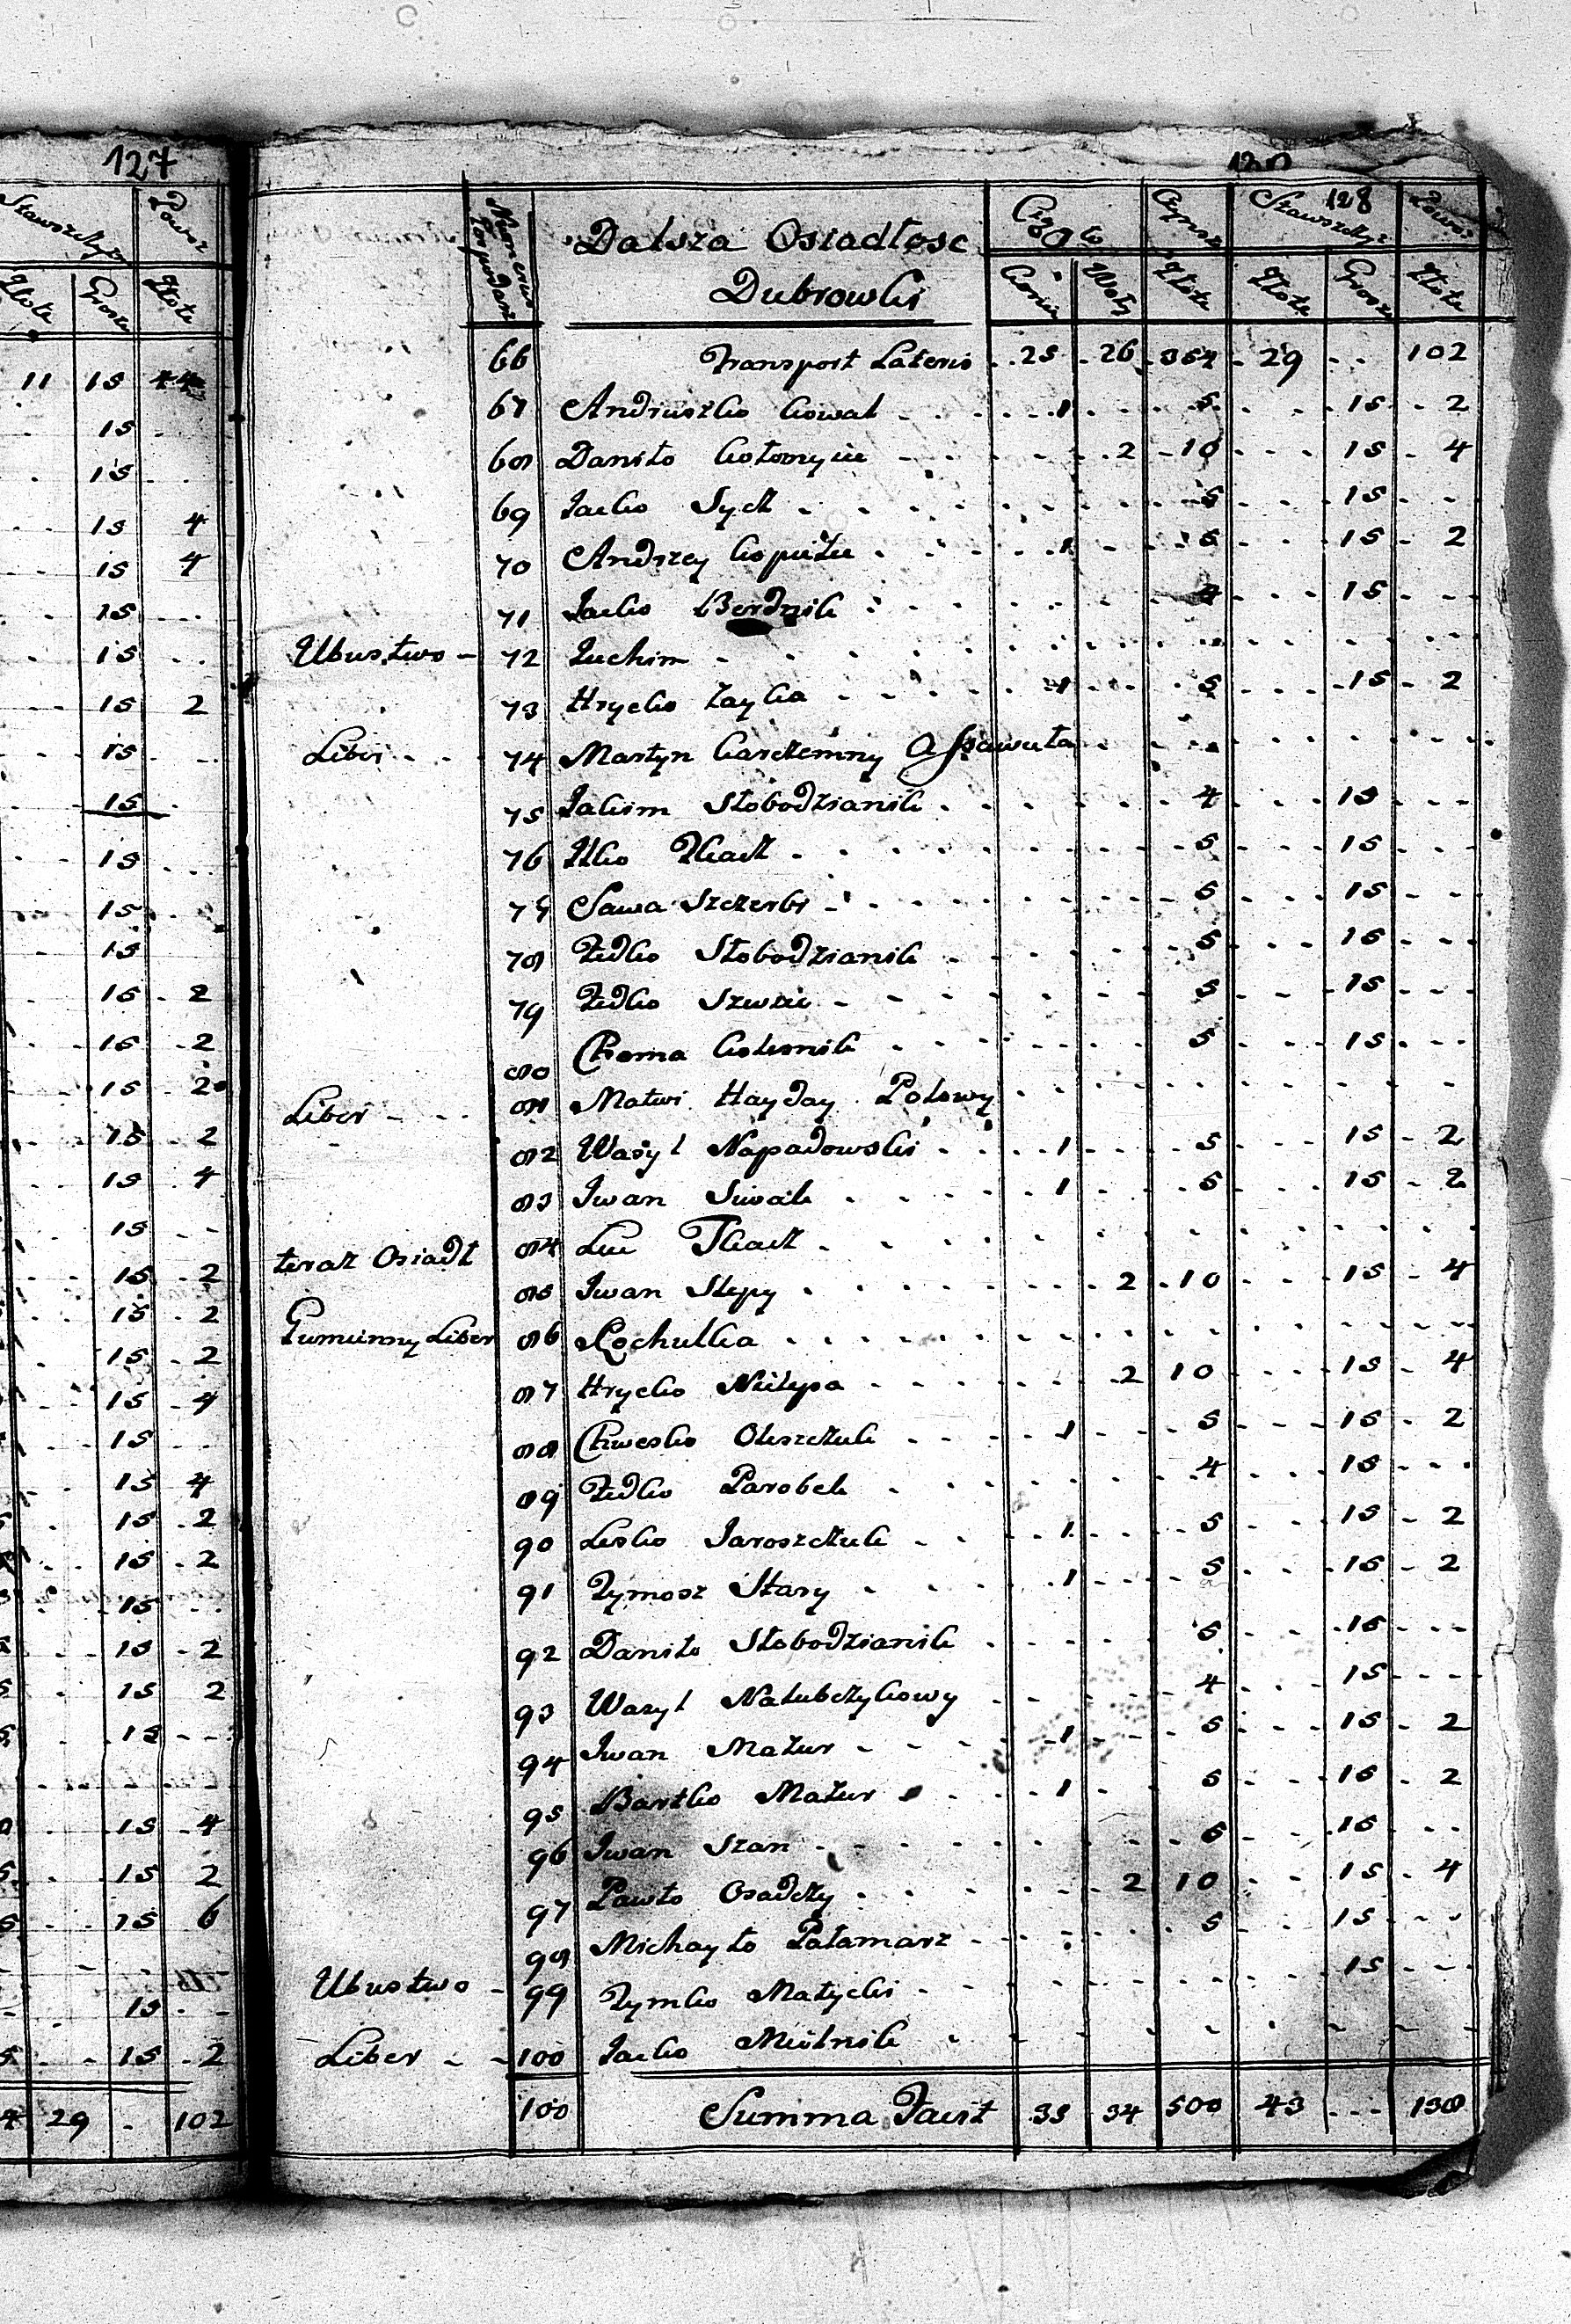 127
128
Stawszczyz
Powoz
Złote
Grosze
Złote
11 15
15
15
15 4
15 4
15
15
15 2
15
15
15
15
15
15 2
15 2
15 2
15 2
15 4
15
15 2
15 2
15 2
15 4
15
15 4
15 2
15 2
15
15 2
15 2
15
15 4
15 2
15 6
15
15 2
4 29 102
Numerus Gospodarz
Dalsza Osiadłosc
Dubrowki
Cięgło
Czynsz
Stawszczyz
Powoz
Konie
Woły
Złote
Złote
Grosze
Złote
66 Transport Lateris 25 26 354 29 102
67 Andriuszko Kowal 1 5 15 2
68 Daniło Kołomyic 2 10 15 4
69 Jacko Sycz 5 15
70 Andrzey 1 5 15 2
71 Jacko Berdnik 4 15
Ubustwo 72 Juchim
73 Hrycko Zayka 1 5 15 2
Liber 74 Martyn Karczemny Assawuła
75 Jakim Słobodzianik 4 15
76 Ilko Tkacz 5 15
77 Sawa Szczerbi 5 15
78 Fedko Słobodzianik 5 15
79 Fedko Szwiec 5 15
80 Choma Kolesnik 5 15
Liber 81 Matwi Hayday Polowy
82 Wasyl Napadowski 1 5 15 2
83 Iwan Siwak 1 5 15 2
teraz Osiadł 84 Luc Tkacz
85 Iwan Slepy 2 10 15 4
Gumienny Liber 86 Kochutka
87 Hrycko 2 10 15 4
88 Chwesko Oleszczuk 1 5 15 2
89 Fedko Parobek 4 15
90 Lesko Jaroszczuk 1 5 15 2
91 Tymosz Stary 1 5 15 2
92 Daniło Słobodzianik 5 15
93 Wasyl 4 15
94 Iwan Mazur 1 5 15 2
95 Bartko Mazur 1 5 15 2
96 Iwan Szan 5 15
97 Pawło Osadczy 2 10 15 4
98 Michayło Pałamarz 5 15
Ubustwo 99 Tymko Matycki 15
Liber 100 Jacko Mielnik
100 Summa Facit 35 34 500 43 138